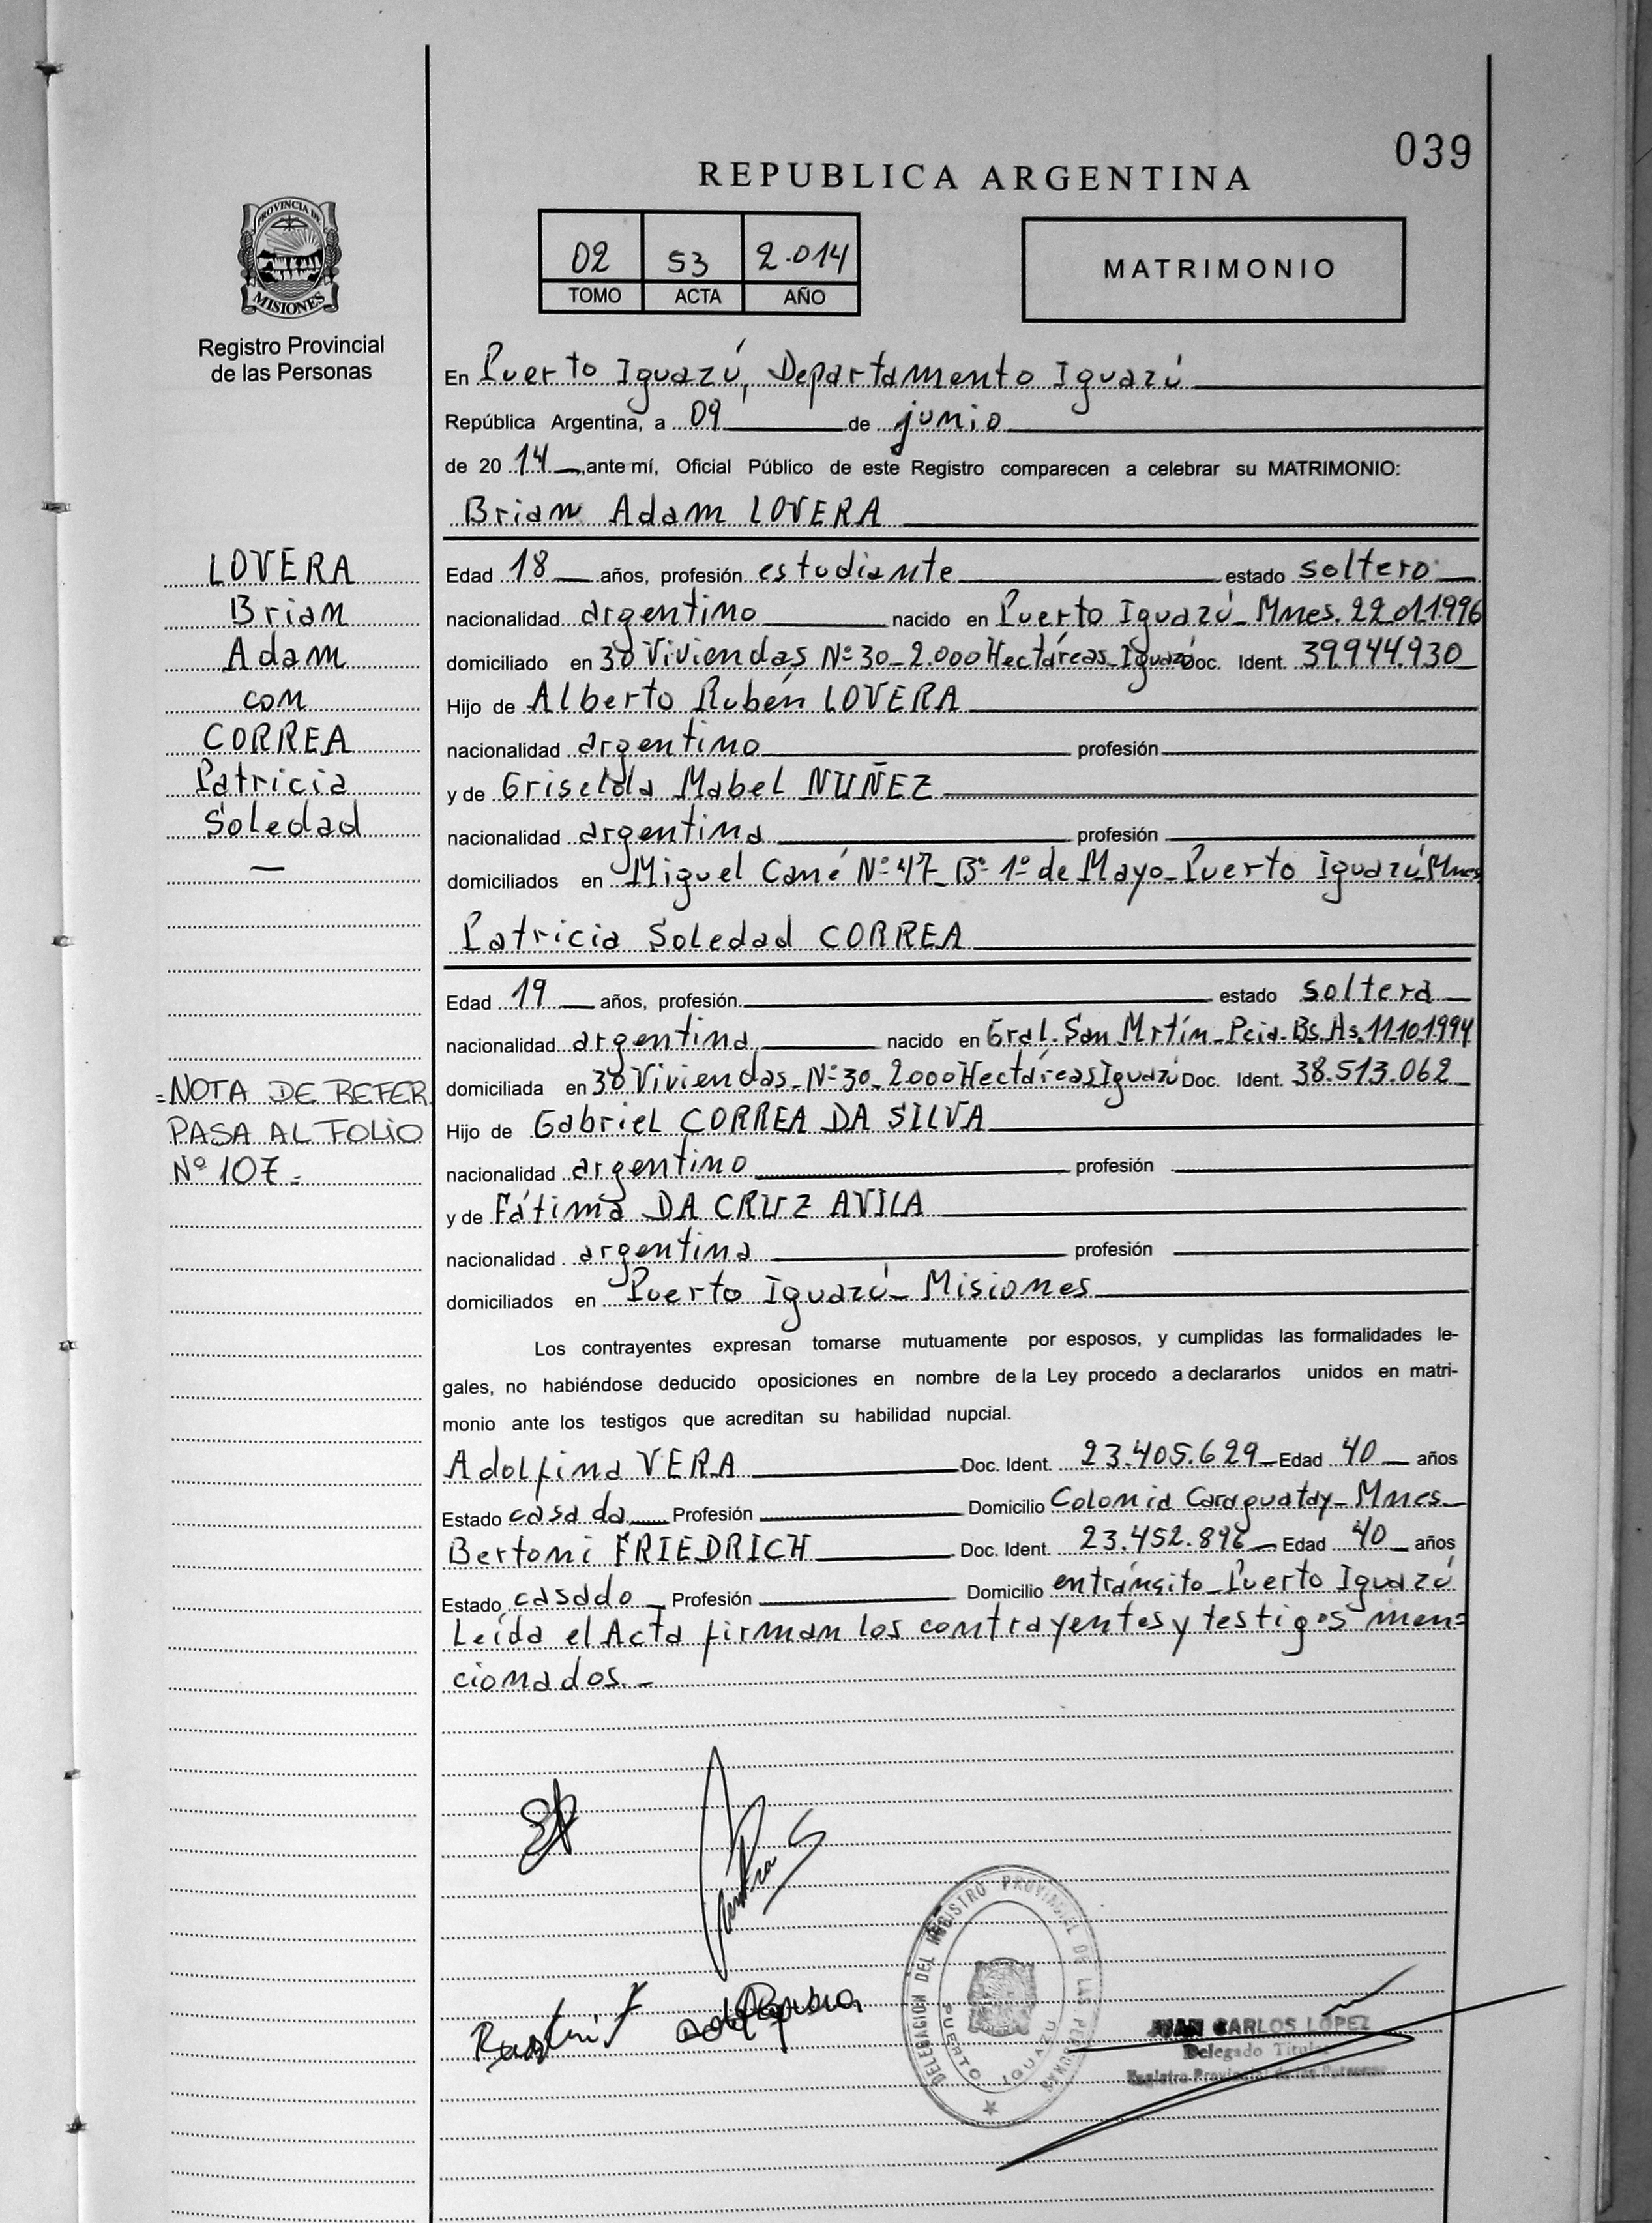 039
REPUBLICA ARGENTINA
PROVINCIA DE
MISIONES
Registro Provincial
de las Personas
02 53 2.014
TOMO ACTA AÑO
MATRIMONIO
En Puerto Iguazú, Departamento Iguazú
República Argentina, a 09 de junio
de 2014, ante mí, Oficial Público de este Registro comparecen a celebrar su MATRIMONIO:
Brian Adam LOVERA
LOVERA
Brian
Adam
con
CORREA
Patricia
Soledad
Edad 18 años, profesión estudiante estado soltero
nacionalidad argentino nacido en Puerto Iguazú_Mnes. 22.01.1996
domiciliado en 30 Viviendas Nº 30_2.000 Hectáreas_Iguazú Doc. Ident. 39.944.930
Hijo de Alberto Rubén LOVERA
nacionalidad argentino profesión
y de Griselda Mabel NUÑEZ
nacionalidad argentina profesión
domiciliados en Miguel Cané Nº 47_Bº 1º de Mayo_Puerto Iguazú_Mnes
Patricia Soledad CORREA
Edad 19 años, profesión estado soltera
nacionalidad argentina nacido en Gral. San Mrtín_Pcia. Bs. As. 11.10.1994
domiciliada en 30 Viviendas_Nº 30_2000 Hectáreas Iguazú Doc. Ident. 38.513.062
=NOTA DE REFER.
PASA AL FOLIO
Nº 107=
Hijo de Gabriel CORREA DA SILVA
nacionalidad argentino profesión
y de Fátima DA CRUZ AVILA
nacionalidad argentina profesión
domiciliados en Puerto Iguazú_Misiones
Los contrayentes expresan tomarse mutuamente por esposos, y cumplidas las formalidades le-
gales, no habiéndose deducido oposiciones en nombre de la Ley procedo a declararlos unidos en matri-
monio ante los testigos que acreditan su habilidad nupcial.
Adolfina VERA Doc. Ident. 23.405.629 Edad 40 años
Estado casada Profesión Domicilio Colonia Caraguatay_Mnes
Bertoni FRIEDRICH Doc. Ident. 23.452.896 Edad 40 años
Estado casado Profesión Domicilio en tránsito_Puerto Iguazú
Leída el Acta firman los contrayentes y testigos men=
cionados._
DELEGACION DEL REGISTRO PROVINCIAL DE LAS PERSONAS
PUERTO IGUAZU
JUAN CARLOS LOPEZ
Delegado Titular
Registro Provincial de las Personas